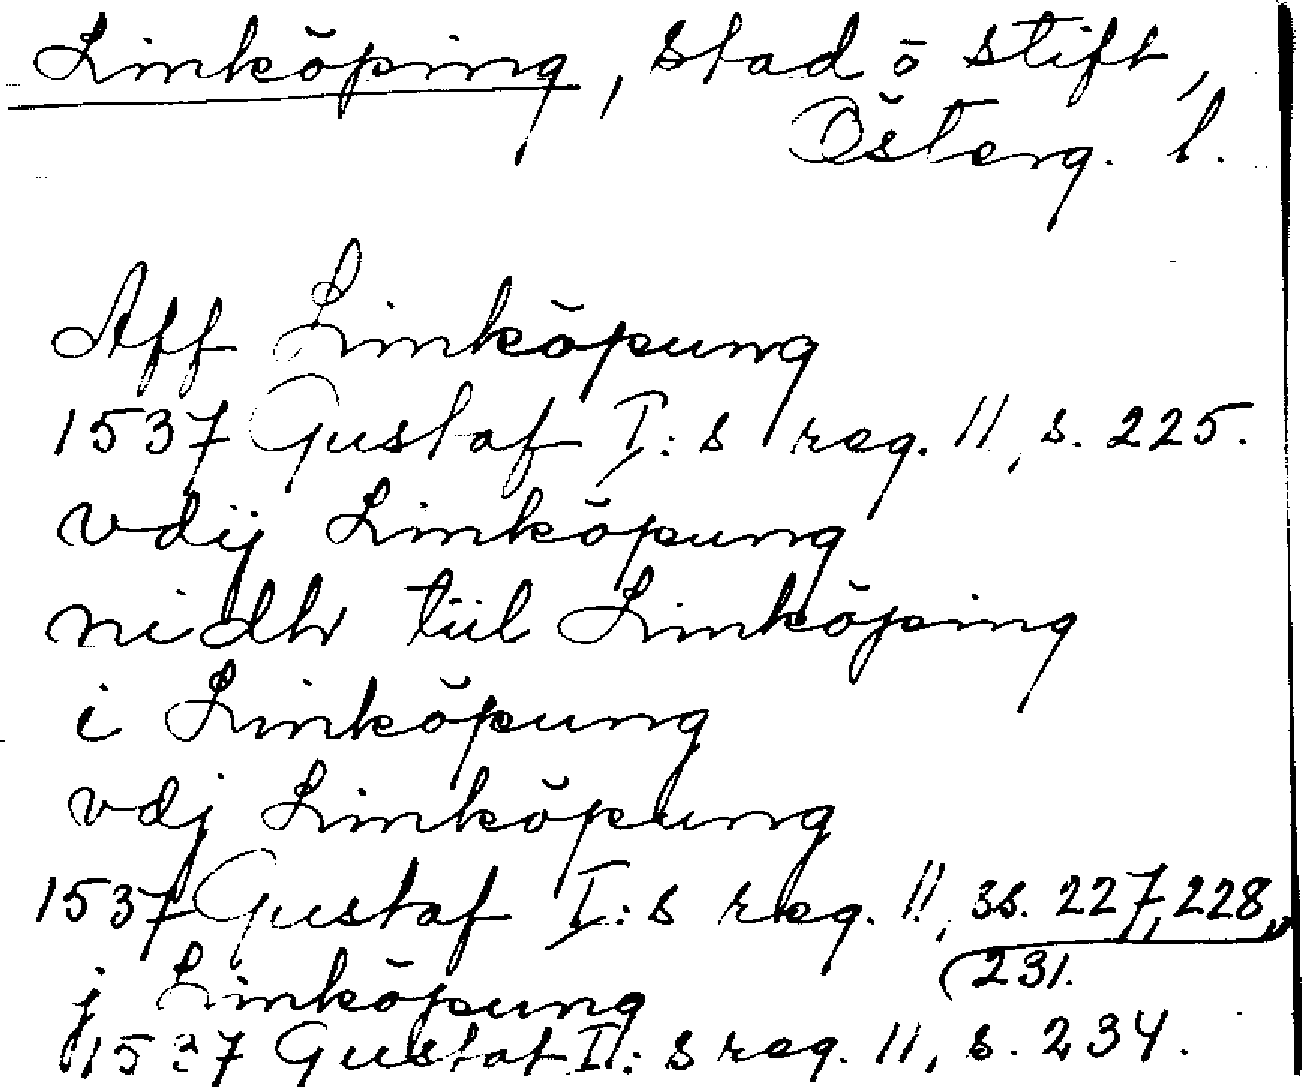 Linköping, stad o stift,
Österg. l.
Aff Linköpung
1537 Gustaf I:s reg. 11, s. 225.
vdij Linköpung
nidhr tiil Linköping
i Linköpung
vdj Linköpung
1537 Gustaf I:s reg. 11, ss. 227, 228,
231.
j Linköpung
1537 Gustaf I:s reg. 11, s. 234.